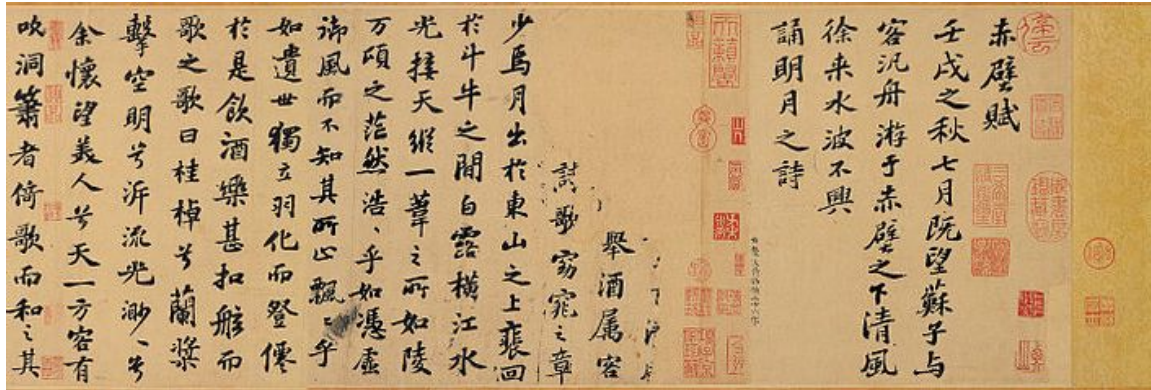 赤壁賦
壬戌之秋七月既望蘇子与
客汎舟游于赤壁之下清風
徐来水波不興
誦明月之詩
舉酒属客
歌窈窕之章
少焉月出於東山之上裵回
於斗牛之間白露横江水
光接天縱一葦之所如陵
万頃之茫然浩〻乎如憑虚
御風而不知其所止飄〻乎
如遺世獨立羽化而登僊
於是飲酒樂甚扣舷而
歌之歌曰桂棹兮蘭槳
擊空明兮泝流光渺〻兮
余懷望美人兮天一方客有
吹洞簫者倚歌而和之其